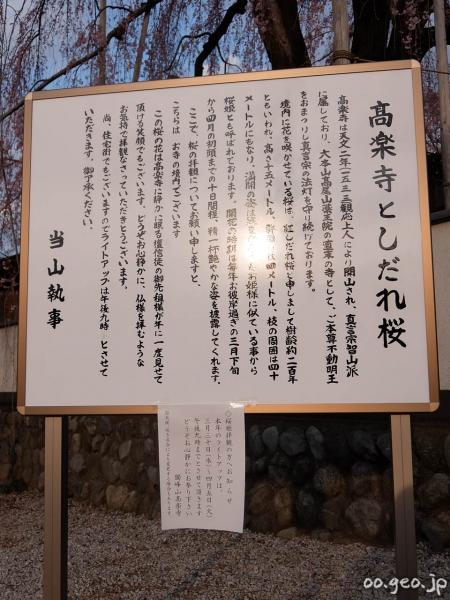 高楽寺としだれ桜
高楽寺は天文二年一五三三観応上人により開山され、真言宗智山派
に属しており、大本山高尾山薬王院の直末の寺として、ご本尊不動明王
をおまつりし真言宗の法灯を守り続けております。
境内に花を咲かせている桜は、紅しだれ桜と申しまして樹齢約二百年
ともいわれ、高さ十五メートル、幹周 四メートル、枝の周囲は四十
メートルにもなり、満開の姿は お姫様に似ている事から
桜姫とも呼ばれております。開花の時期は毎年お彼岸過ぎの三月下旬
から四月の初頭までの十日間程、精一杯艶やかな姿を披露してくれます。
ここで、桜の拝観についてお願い申しますと、
こちらは お寺の境内でございます
この桜の花は高楽寺に静かに眠る檀信徒の御先祖様が年に一度見せて
頂ける笑顔でもございます。どうぞお心静かに、仏様を拝むような
お気持で拝観なさっていただきとうございます。
尚、住宅街でもございますのでライトアップは午後九時 とさせて
いただきます。御了承ください。
当山執事
◯桜姫拝観の方へお知らせ
本年のライトアップは、
三月三十日(水)〜四月五日(火)
午後九時までとさせて頂きます
どうぞお心静かにお参り下さい
高楽寺
oo.geo.jp